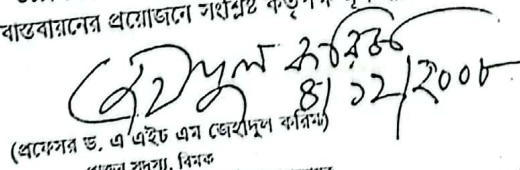 বাস্তবায়নের প্রয়োজনে সংশ্লিষ্ট
করিম
৪/১২/২০০৮
(প্রফেসর ড. এ এইচ এম জেহাদুল করিম)
সদস্য, বিমক